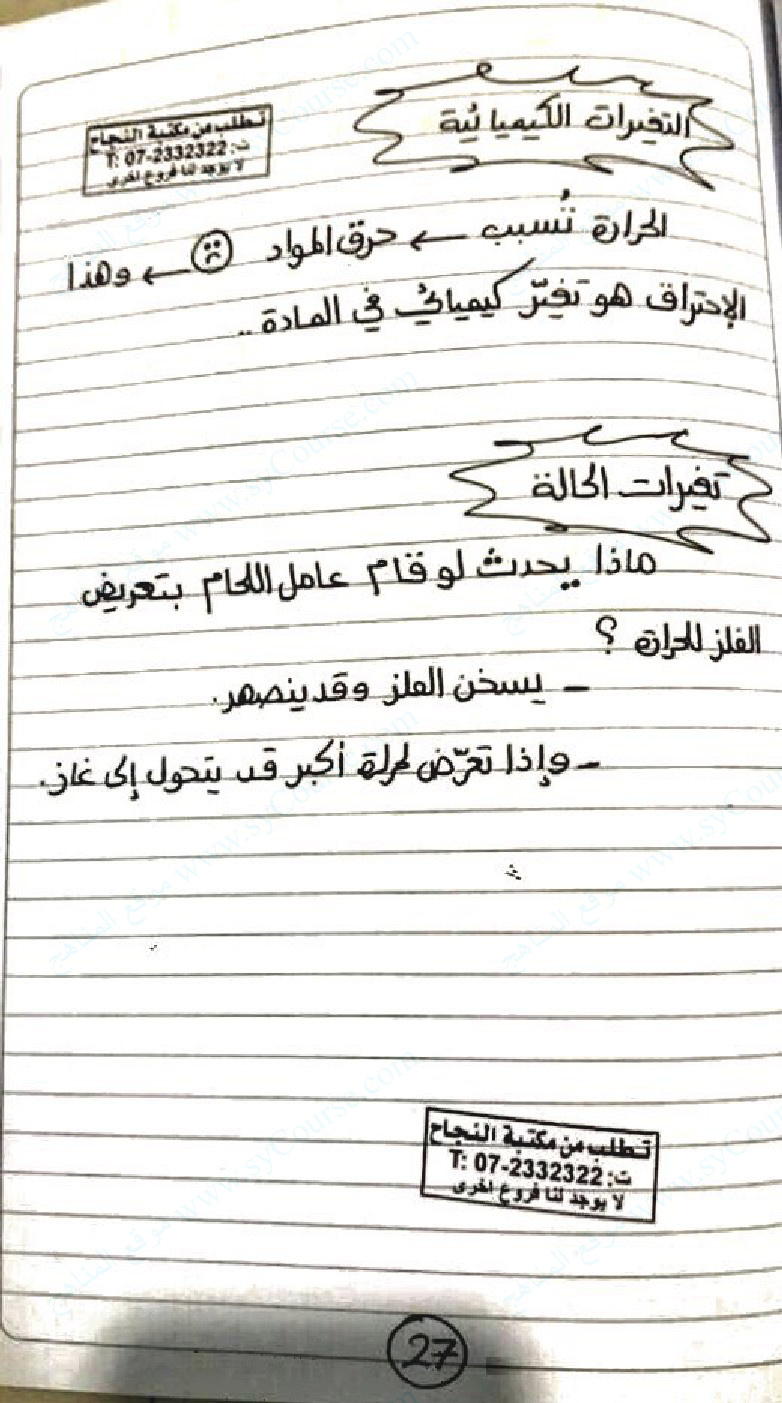 التغيرات الكيميائية
تطلب من مكتبة النجاح
ت: T: 07-2332322
لا يوجد لنا فروع اخرى
الحرارة تُسبب ← حرق المواد ☹ ← وهذا
الإحتراق هو تغيّر كيميائي في المادة ..
تغيرات الحالة
ماذا يحدث لو قام عامل اللحام بتعريض
الفلز للحرارة ؟
- يسخن الفلز وقد ينصهر.
- وإذا تعرّض لحرارة أكبر قد يتحول إلى غاز.
تطلب من مكتبة النجاح
ت: T: 07-2332322
لا يوجد لنا فروع اخرى
27
موقع المناهج www.syCourse.com